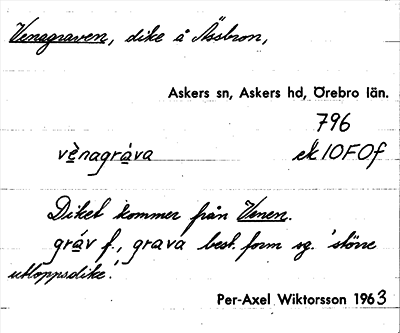 Venagraven, dike å Åsbron,
Askers sn, Askers hd, Örebro län.
796
vènagràva ek 10F0f
Diket kommer från Venen.
gráv f., grava best. form sg. 'större
utloppsdike'.
Per-Axel Wiktorsson 1963